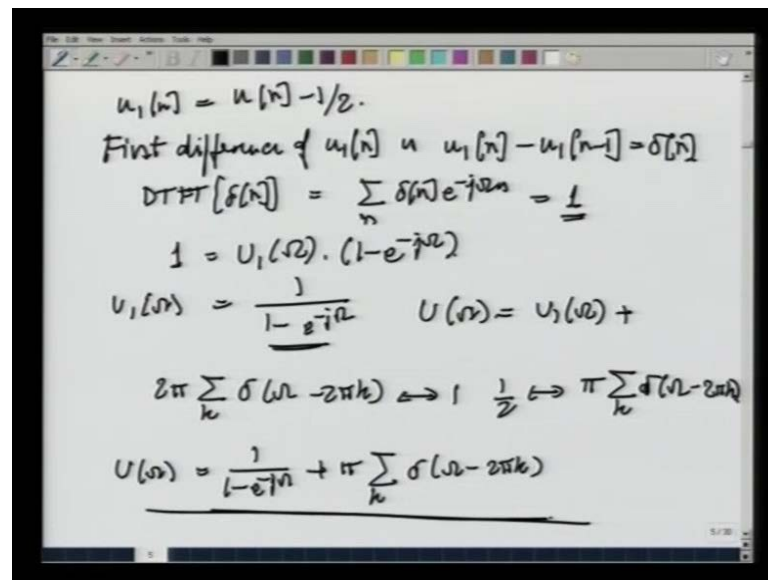 File Edit View Insert Actions Tools Help
u₁[n] = u[n] - 1/2.
First difference of u₁[n] is u₁[n] - u₁[n-1] = δ[n]
DTFT[δ[n]] = ∑ₙ δ[n] e^{-jΩn} = 1
1 = U₁(Ω). (1-e^{-jΩ})
U₁(Ω) = 1/(1-e^{-jΩ}) U(Ω) = U₁(Ω) +
2π ∑ₖ δ(Ω - 2πk) ↔ 1 1/2 ↔ π ∑ₖ δ(Ω - 2πk)
U(Ω) = 1/(1-e^{-jΩ}) + π ∑ₖ δ(Ω - 2πk)
5